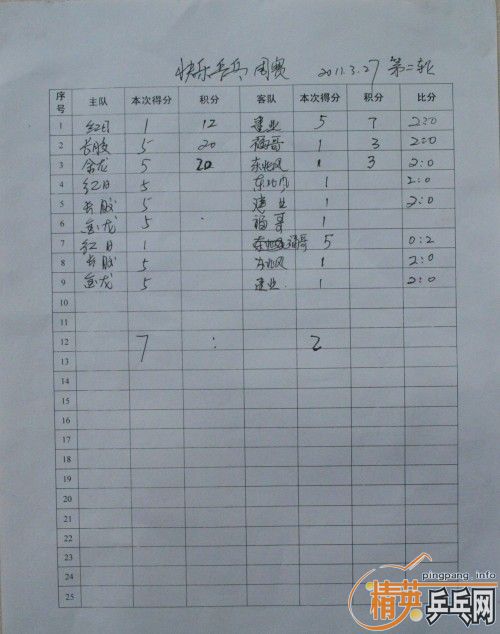 快乐乒乓周赛 2011.3.27 第二轮
序号 主队 本次得分 积分 客队 本次得分 积分 比分
1 红日 1 12 建业 5 7 2:0
2 长胶 5 20 福哥 1 3 2:0
3 金龙 5 20 东北风 1 3 2:0
4 红日 5 东北风 1 2:0
5 长胶 5 建业 1 2:0
6 金龙 5 福哥 1
7 红日 1 福哥 5 0:2
8 长胶 5 东北风 1 2:0
9 金龙 5 建业 1 2:0
10
11
12 7 : 2
13
14
15
16
17
18
19
20
21
22
23
24
25
pingpang.info
精英乒乓网